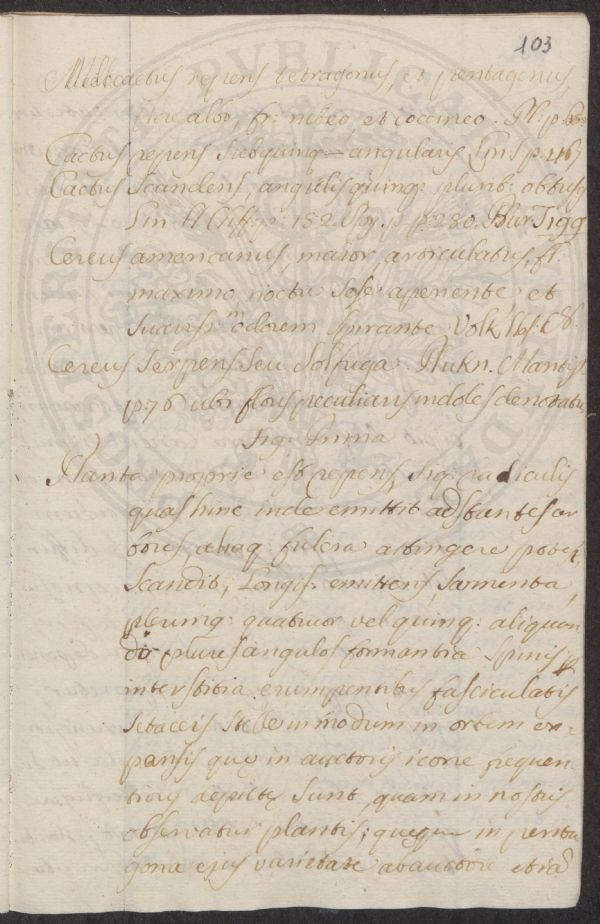 103
Melocactus repens tetragonus, et pentagonus,
flore albo, fr: niveo et coccineo. Pl: p.
Cactus repens subquinq-angularis Lin S p. 467
Cactus Scandens, angulis quinq: plurib: obtusis
Lin H Cliff: p: 182 Roy. p. 280. Bur Tigg
Cereus americanus, maior, articulatus, fl:
maximo, noctu sese aperiente et
suaviss: odorem spirante Volk
Cereus Serpens seu Solfuga. Plukn. Mantiss
p. 76 ubi floris peculiaris indoles denotatur
fig: prima
Planta proprie est repens, sig: radiculis
quas hinc inde emittit adstantes ar
bores aliaq: fulcra attingere potest,
Scandit, Longis: emittens, Sarmenta,
plerumq: quatuor vel quinq: aliquan
do plures angulos formantia Spinis p
interstitia, erumpentibus fasciculatis
setaceis Stellae in modum in orbem ex-
pansis quae in auctoris icone frequen
tioris depictae sunt, quam in nostris
observatur plantis; in penta
gona ejus varietate ab auctore